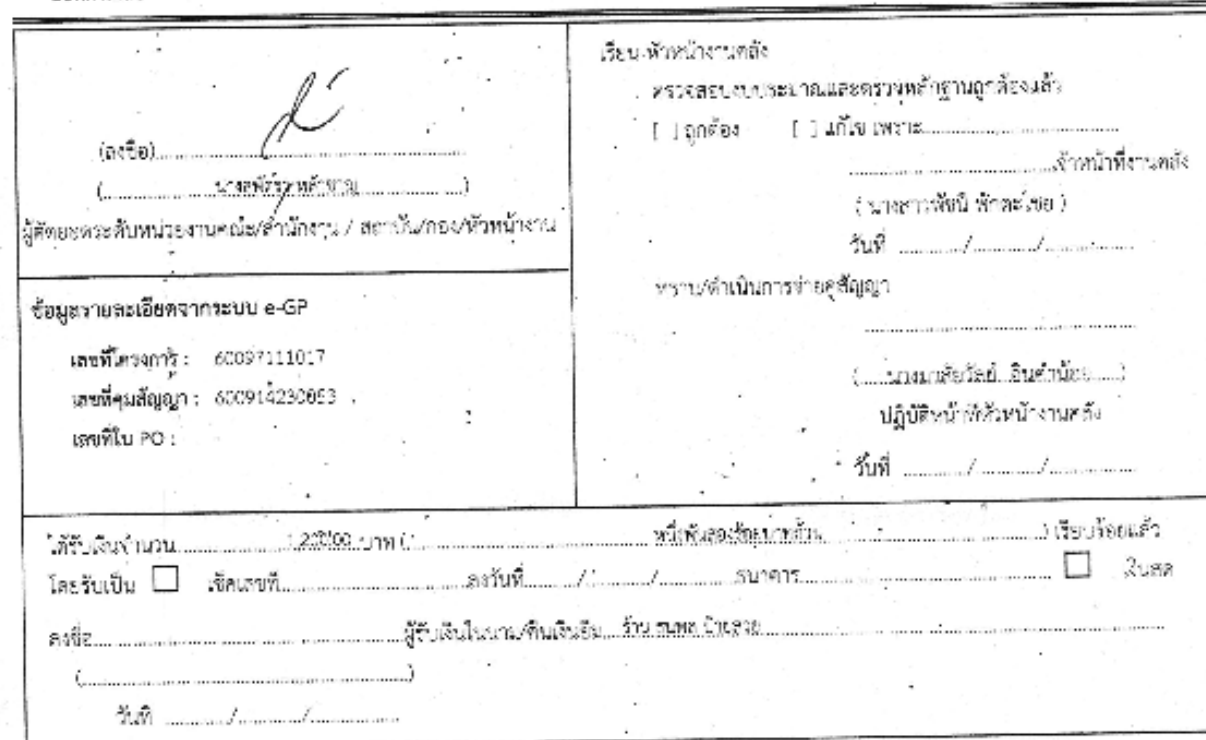 (ลงชื่อ)
(..........................)
ผู้ตัดยอดระดับหน่วยงานคณะ/สำนักงาน / สถาบัน/กอง/หัวหน้างาน
ข้อมูลรายละเอียดจากระบบ e-GP
เลขที่โครงการ : 60097111017
เลขที่คุมสัญญา : 600914230853
เลขที่ใบ PO :
เรียน หัวหน้างานคลัง
ตรวจสอบงบประมาณและตรวจหลักฐานถูกต้องแล้ว
[ ] ถูกต้อง [ ] แก้ไข เพราะ
เจ้าหน้าที่งานคลัง
( นางสาวพัชนี )
วันที่ ............/............/............
ทราบ/ดำเนินการจ่ายคู่สัญญา
(..........................)
ปฏิบัติหน้าที่หัวหน้างานคลัง
วันที่ ............/............/............
ได้รับเงินจำนวน บาท ( หนึ่งพันสองร้อยบาทถ้วน ) เรียบร้อยแล้ว
โดยรับเป็น ☐ เช็คเลขที่ ลงวันที่ ......../......../........ ธนาคาร ☐ เงินสด
ลงชื่อ ผู้รับเงินในนาม/คืนเงินยืม ร้าน ธนพล ป้ายสวย
(..........................)
วันที่ ............/............/............